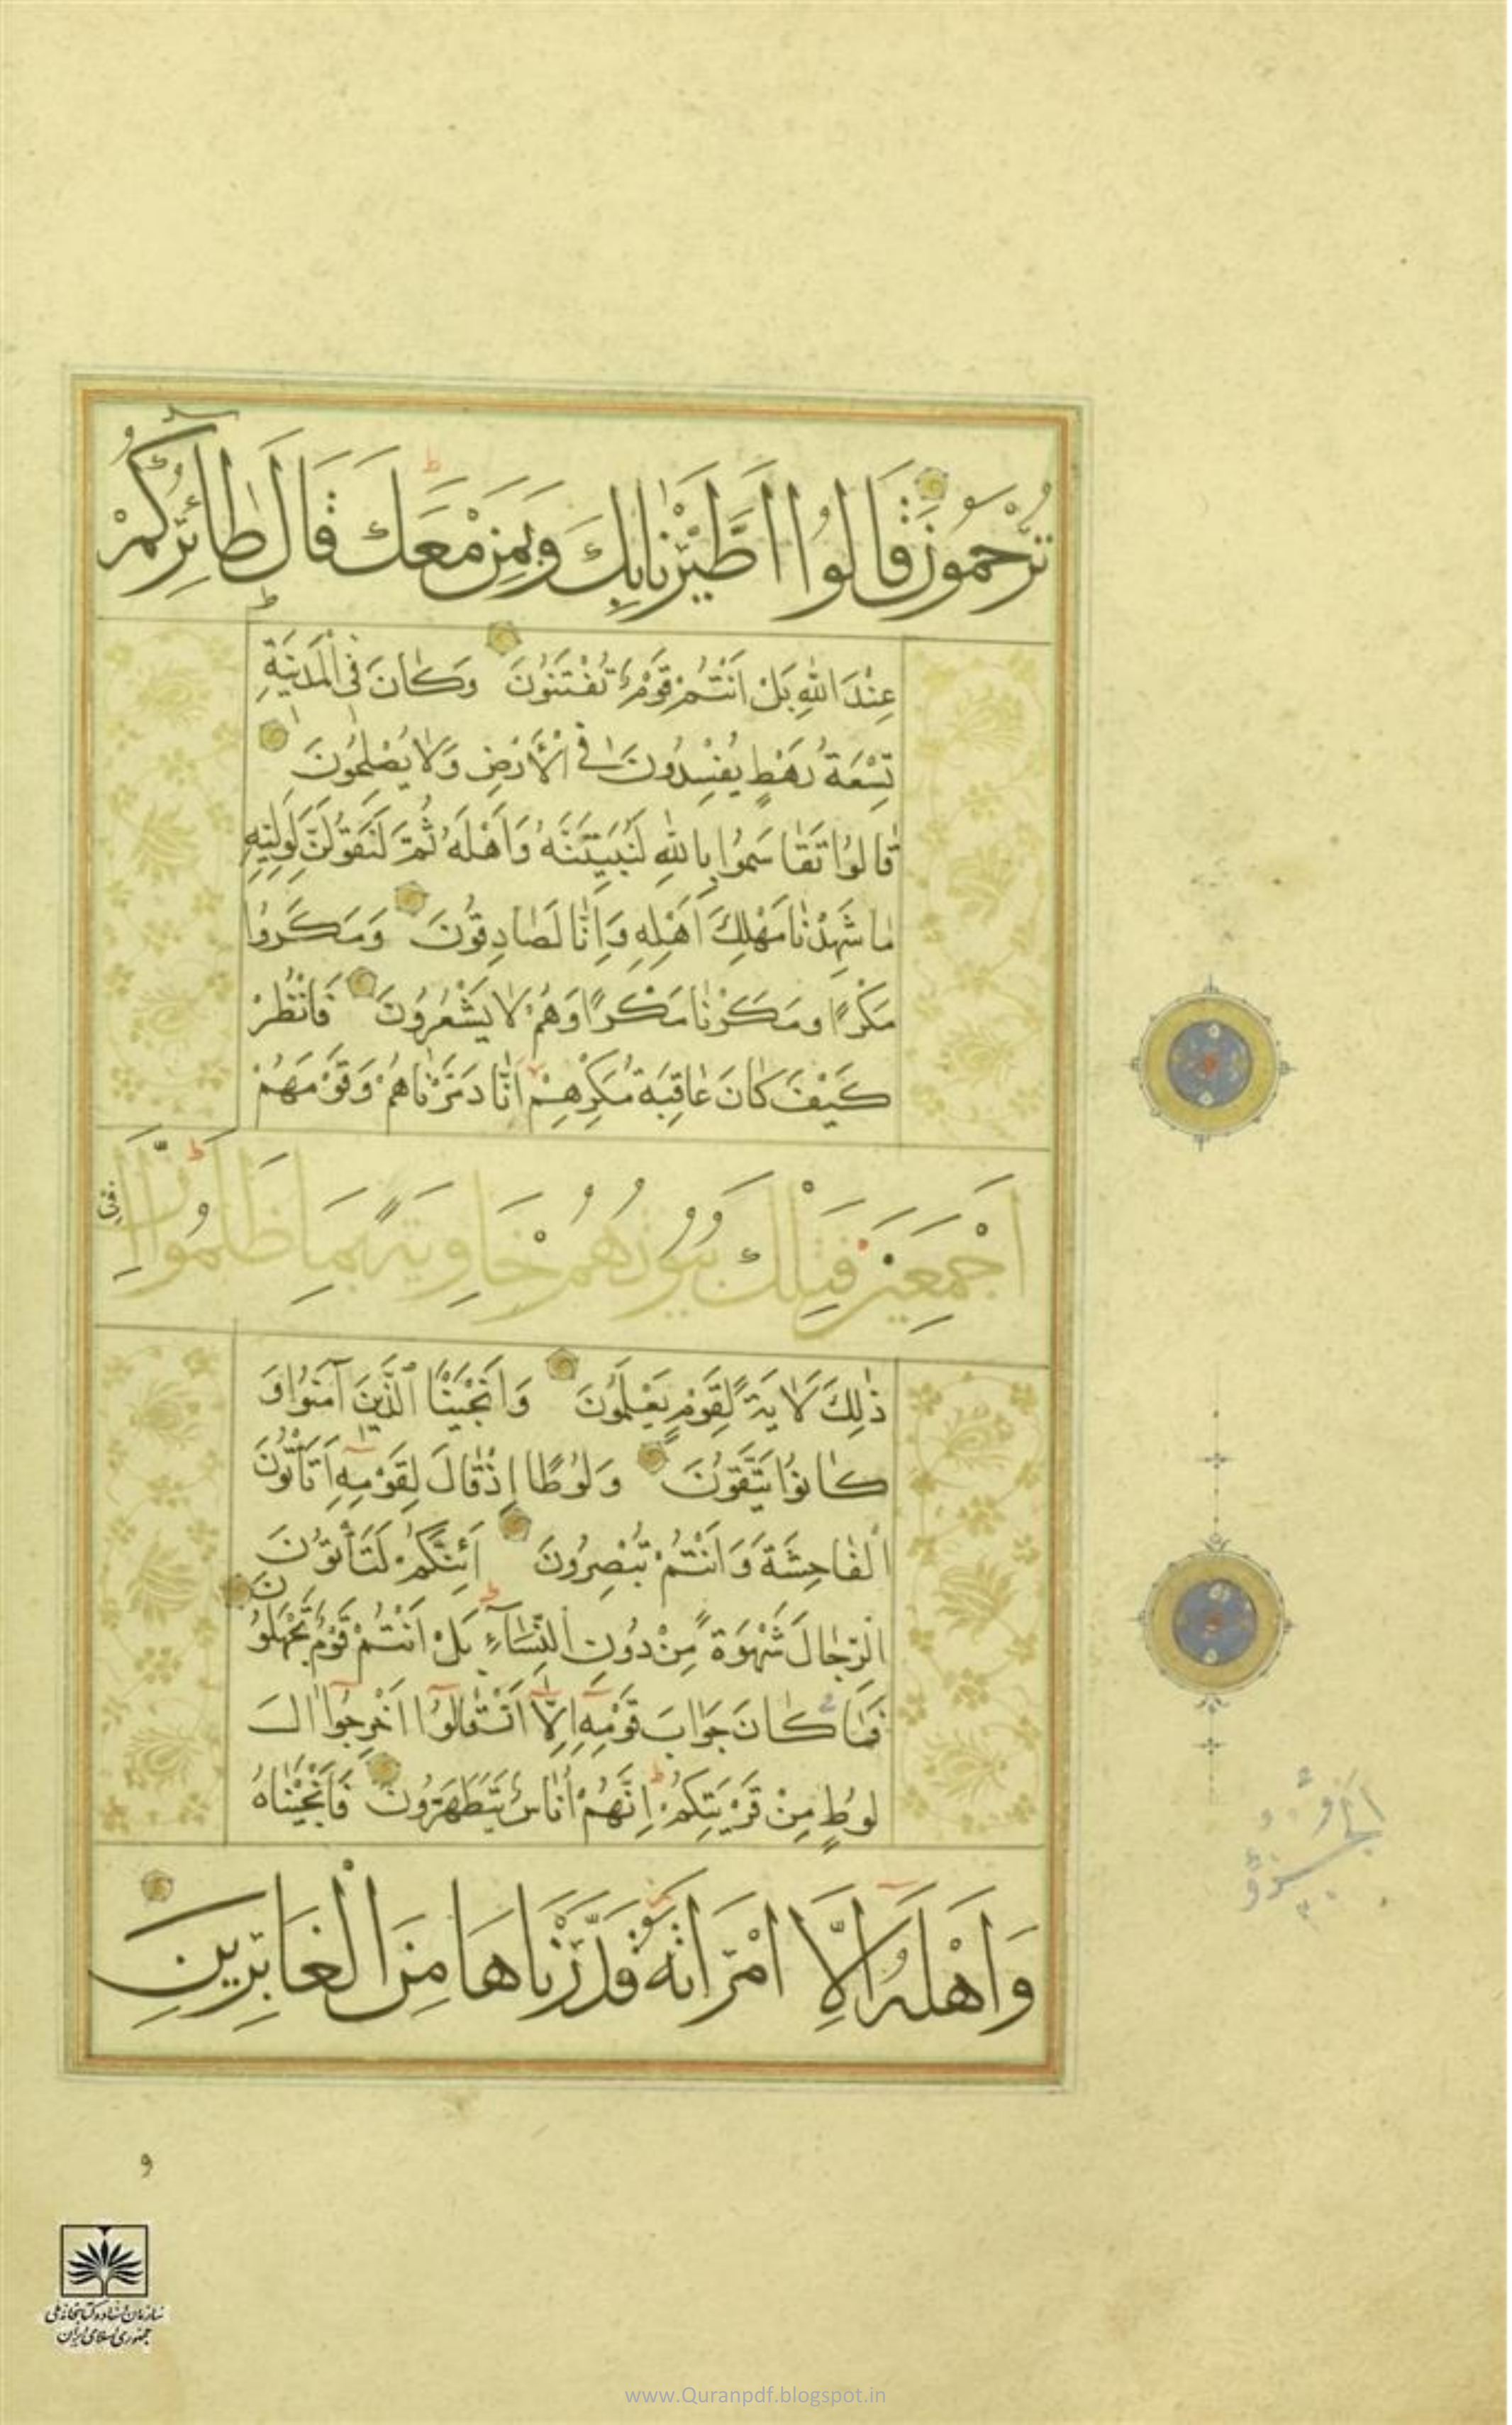 تُرْحَمُونَ قَالُوا اطَّيَّرْنَا بِكَ وَبِمَنْ مَعَكَ قَالَ طَائِرُكُمْ
عِنْدَ اللهِ بَلْ اَنْتُمْ قَوْمٌ تُفْتَنُونَ وَكَانَ فِى الْمَدِينَةِ
تِسْعَةُ رَهْطٍ يُفْسِدُونَ فِى الْأَرْضِ وَلَا يُصْلِحُونَ
قَالُوا تَقَاسَمُوا بِاللهِ لَنُبَيِّتَنَّهُ وَاَهْلَهُ ثُمَّ لَنَقُولَنَّ لِوَلِيِّهِ
مَا شَهِدْنَا مَهْلِكَ اَهْلِهِ وَاِنَّا لَصَادِقُونَ وَمَكَرُوا
مَكْرًا وَمَكَرْنَا مَكْرًا وَهُمْ لَا يَشْعُرُونَ فَانْظُرْ
كَيْفَ كَانَ عَاقِبَةُ مَكْرِهِمْ اَنَّا دَمَّرْنَاهُمْ وَقَوْمَهُمْ
اَجْمَعِينَ فَتِلْكَ بُيُوتُهُمْ خَاوِيَةً بِمَا ظَلَمُوا اِنَّ فِى
ذٰلِكَ لَاٰيَةً لِقَوْمٍ يَعْلَمُونَ وَاَنْجَيْنَا الَّذِينَ اٰمَنُوا وَ
كَانُوا يَتَّقُونَ وَلُوطًا اِذْ قَالَ لِقَوْمِهِ اَتَأْتُونَ
الْفَاحِشَةَ وَاَنْتُمْ تُبْصِرُونَ اَئِنَّكُمْ لَتَأْتُونَ
الرِّجَالَ شَهْوَةً مِنْ دُونِ النِّسَاءِ بَلْ اَنْتُمْ قَوْمٌ تَجْهَلُونَ
فَمَا كَانَ جَوَابَ قَوْمِهِ اِلَّا اَنْ قَالُوا اَخْرِجُوا اٰلَ
لُوطٍ مِنْ قَرْيَتِكُمْ اِنَّهُمْ اُنَاسٌ يَتَطَهَّرُونَ فَاَنْجَيْنَاهُ
وَاَهْلَهُ اِلَّا امْرَاَتَهُ قَدَّرْنَاهَا مِنَ الْغَابِرِينَ
و
سازمان اسناد و کتابخانه ملی
جمهوری اسلامی ایران
www.Quranpdf.blogspot.in